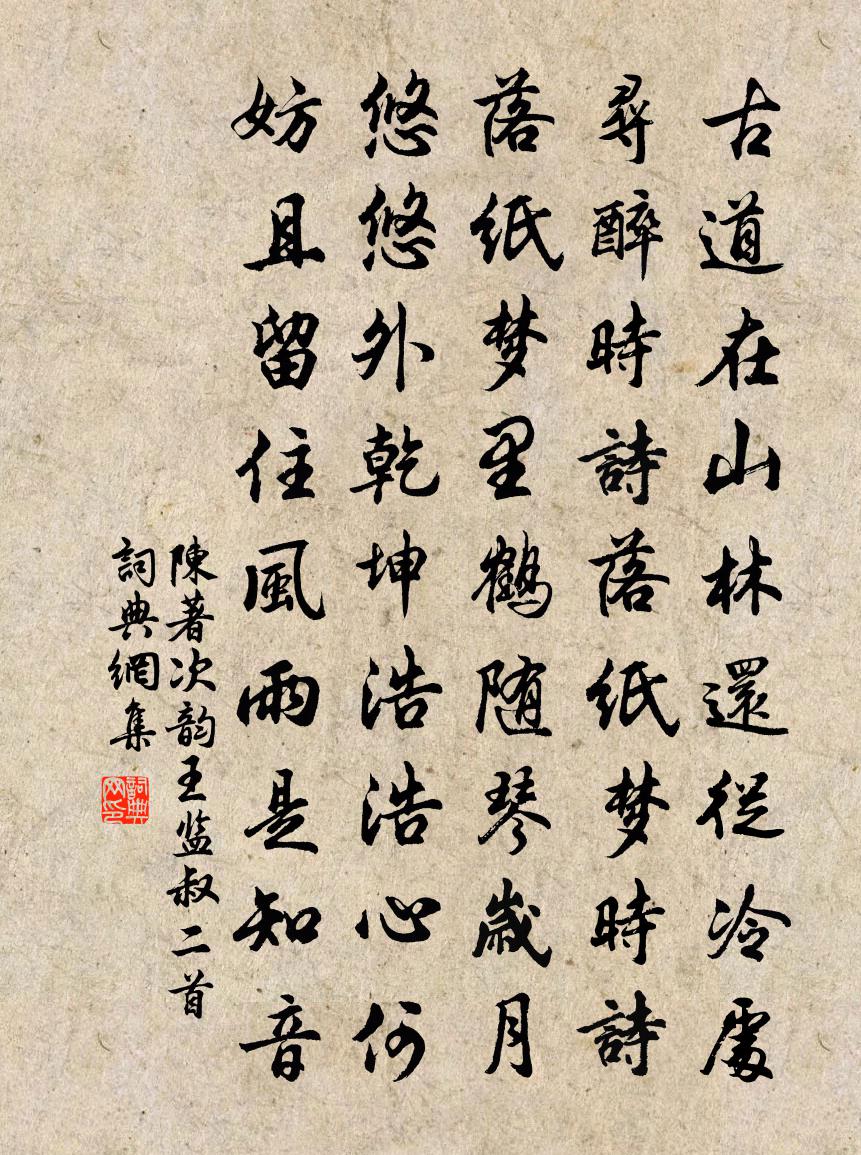 古道在山林還從冷處
尋醉時詩落紙梦時詩
落紙梦里鶴随琴歳月
悠悠外乾坤浩浩心何
妨且留住風雨是知音
陳著次韵王监叔二首
詞典網集
詞典网印